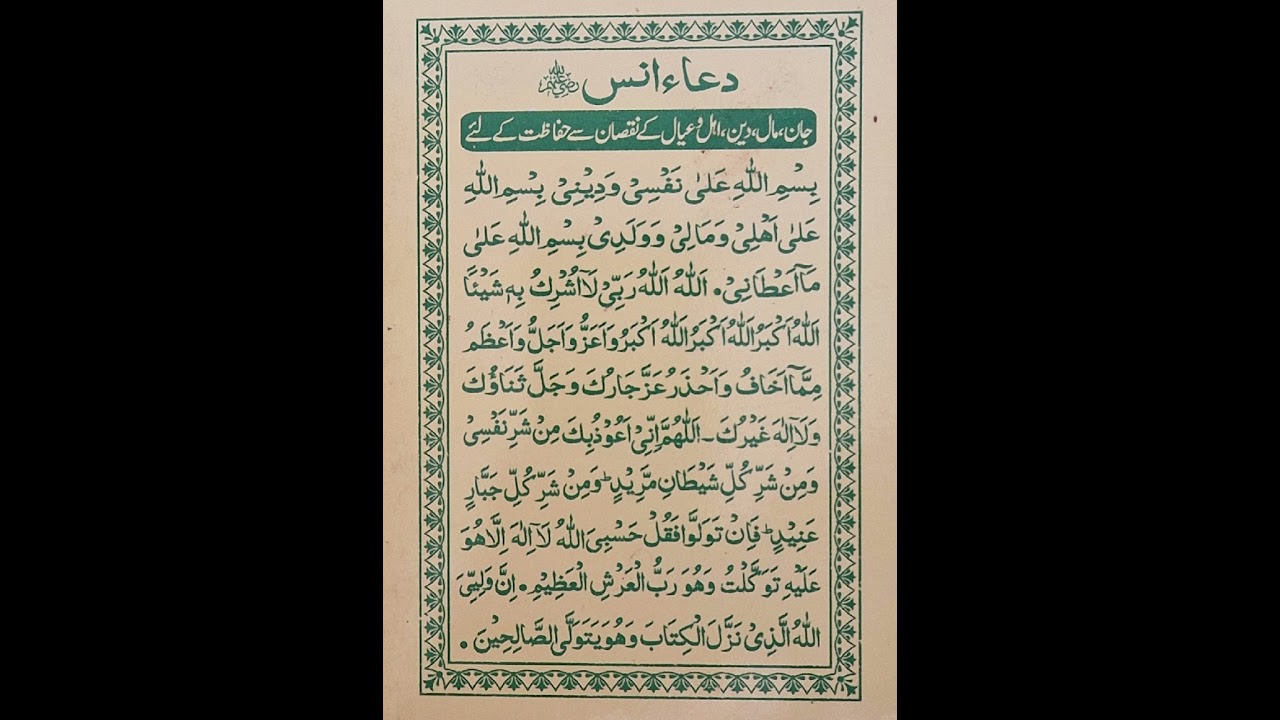 دعاء انس رضی اللہ عنہ
جان، مال، دین، اہل و عیال کے نقصان سے حفاظت کے لئے
بِسْمِ اللّٰهِ عَلٰى نَفْسِىْ وَدِيْنِىْ بِسْمِ اللّٰهِ
عَلٰى اَهْلِىْ وَمَالِىْ وَوَلَدِىْ بِسْمِ اللّٰهِ عَلٰى
مَآ اَعْطَانِىْ۔ اَللّٰهُ اَللّٰهُ رَبِّىْ لَآ اُشْرِكُ بِهٖ شَيْئًا
اَللّٰهُ اَكْبَرُ اَللّٰهُ اَكْبَرُ اَللّٰهُ اَكْبَرُ وَاَعَزُّ وَاَجَلُّ وَاَعْظَمُ
مِمَّآ اَخَافُ وَاَحْذَرُ عَزَّ جَارُكَ وَجَلَّ ثَنَاؤُكَ
وَلَآ اِلٰهَ غَيْرُكَ۔ اَللّٰهُمَّ اِنِّىْ اَعُوْذُ بِكَ مِنْ شَرِّ نَفْسِىْ
وَمِنْ شَرِّ كُلِّ شَيْطَانٍ مَّرِيْدٍؕ وَمِنْ شَرِّ كُلِّ جَبَّارٍ
عَنِيْدٍؕ فَاِنْ تَوَلَّوْا فَقُلْ حَسْبِىَ اللّٰهُ لَآ اِلٰهَ اِلَّا هُوَ
عَلَيْهِ تَوَكَّلْتُ وَهُوَ رَبُّ الْعَرْشِ الْعَظِيْمِ۔ اِنَّ وَلِيِّىَ
اللّٰهُ الَّذِىْ نَزَّلَ الْكِتَابَ وَهُوَ يَتَوَلَّى الصَّالِحِيْنَ۔